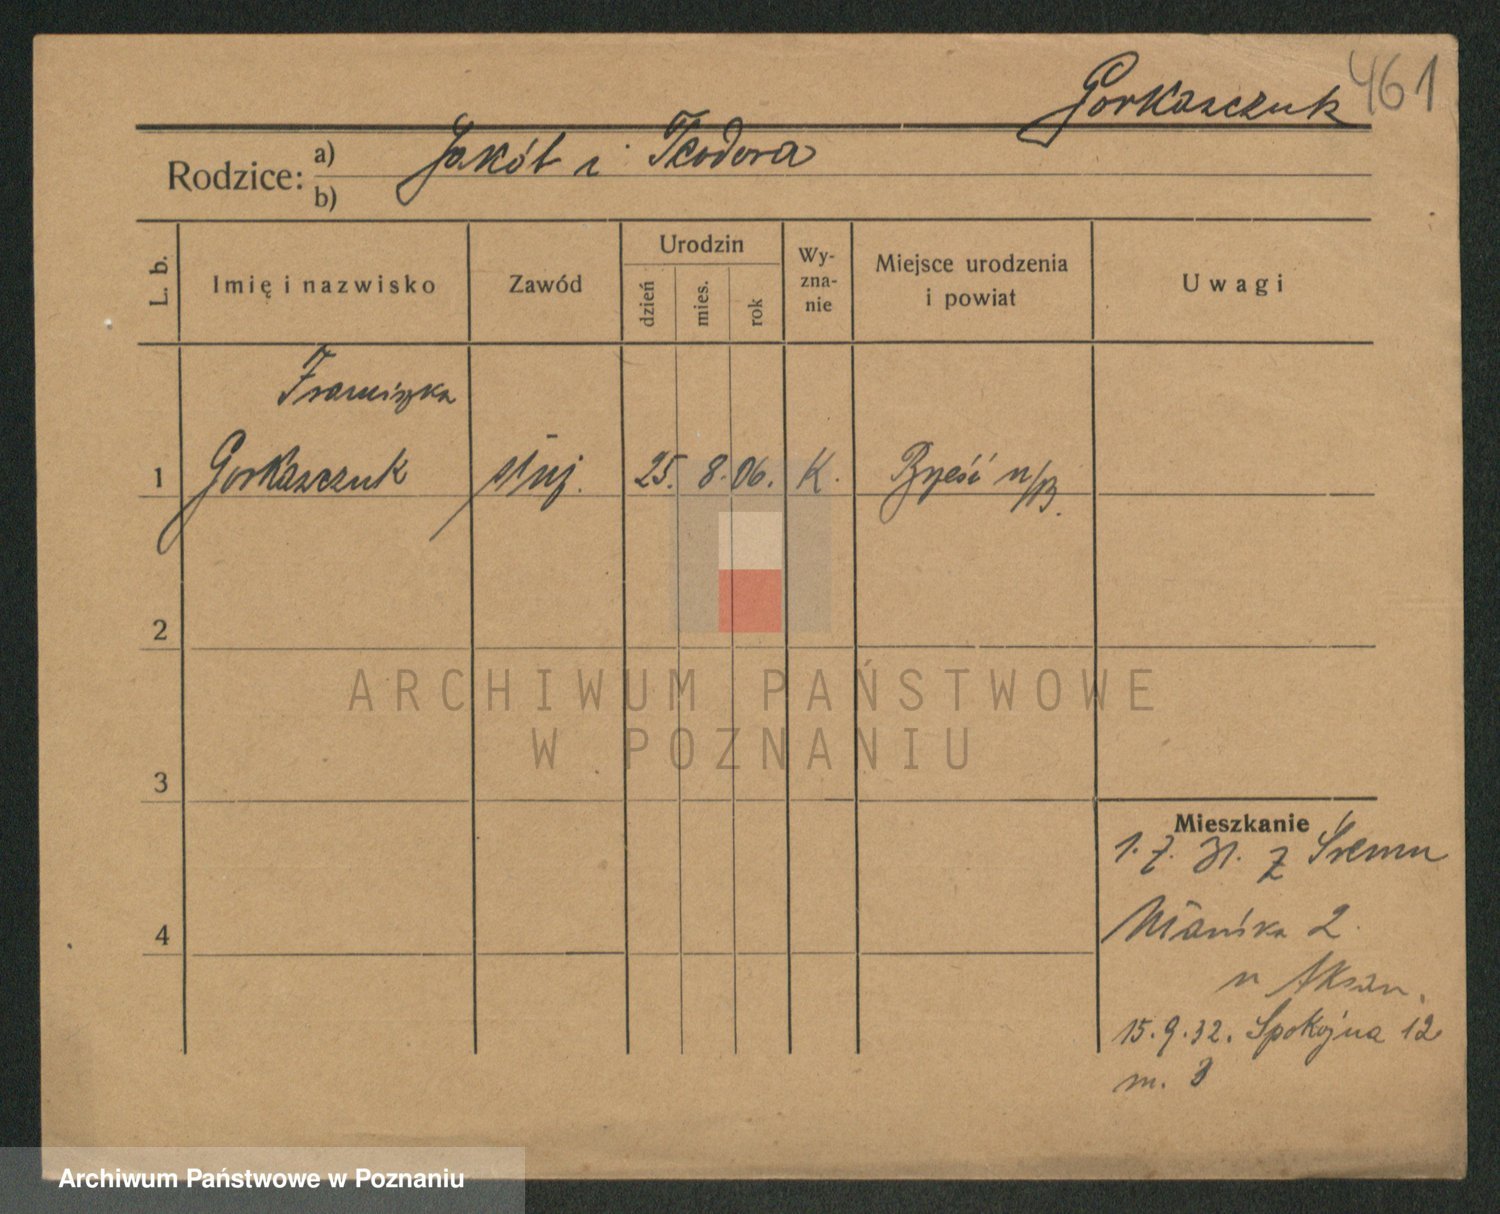 461
Gorkaszczuk
Rodzice: a) Jakób i Teodora
b)
L. b.
Imię i nazwisko
Zawód
Urodzin
dzień
mies.
rok
Wy-
zna-
nie
Miejsce urodzenia
i powiat
Uwagi
Franciszka
1 Gorkaszczuk służ. 25. 8. 06. K. Brześć n/B.
2
3
4
Mieszkanie
1. 7. 31. z Śremu
2.
u
15.9.32. Spokojna 12
m. 3
ARCHIWUM PAŃSTWOWE
W POZNANIU
Archiwum Państwowe w Poznaniu